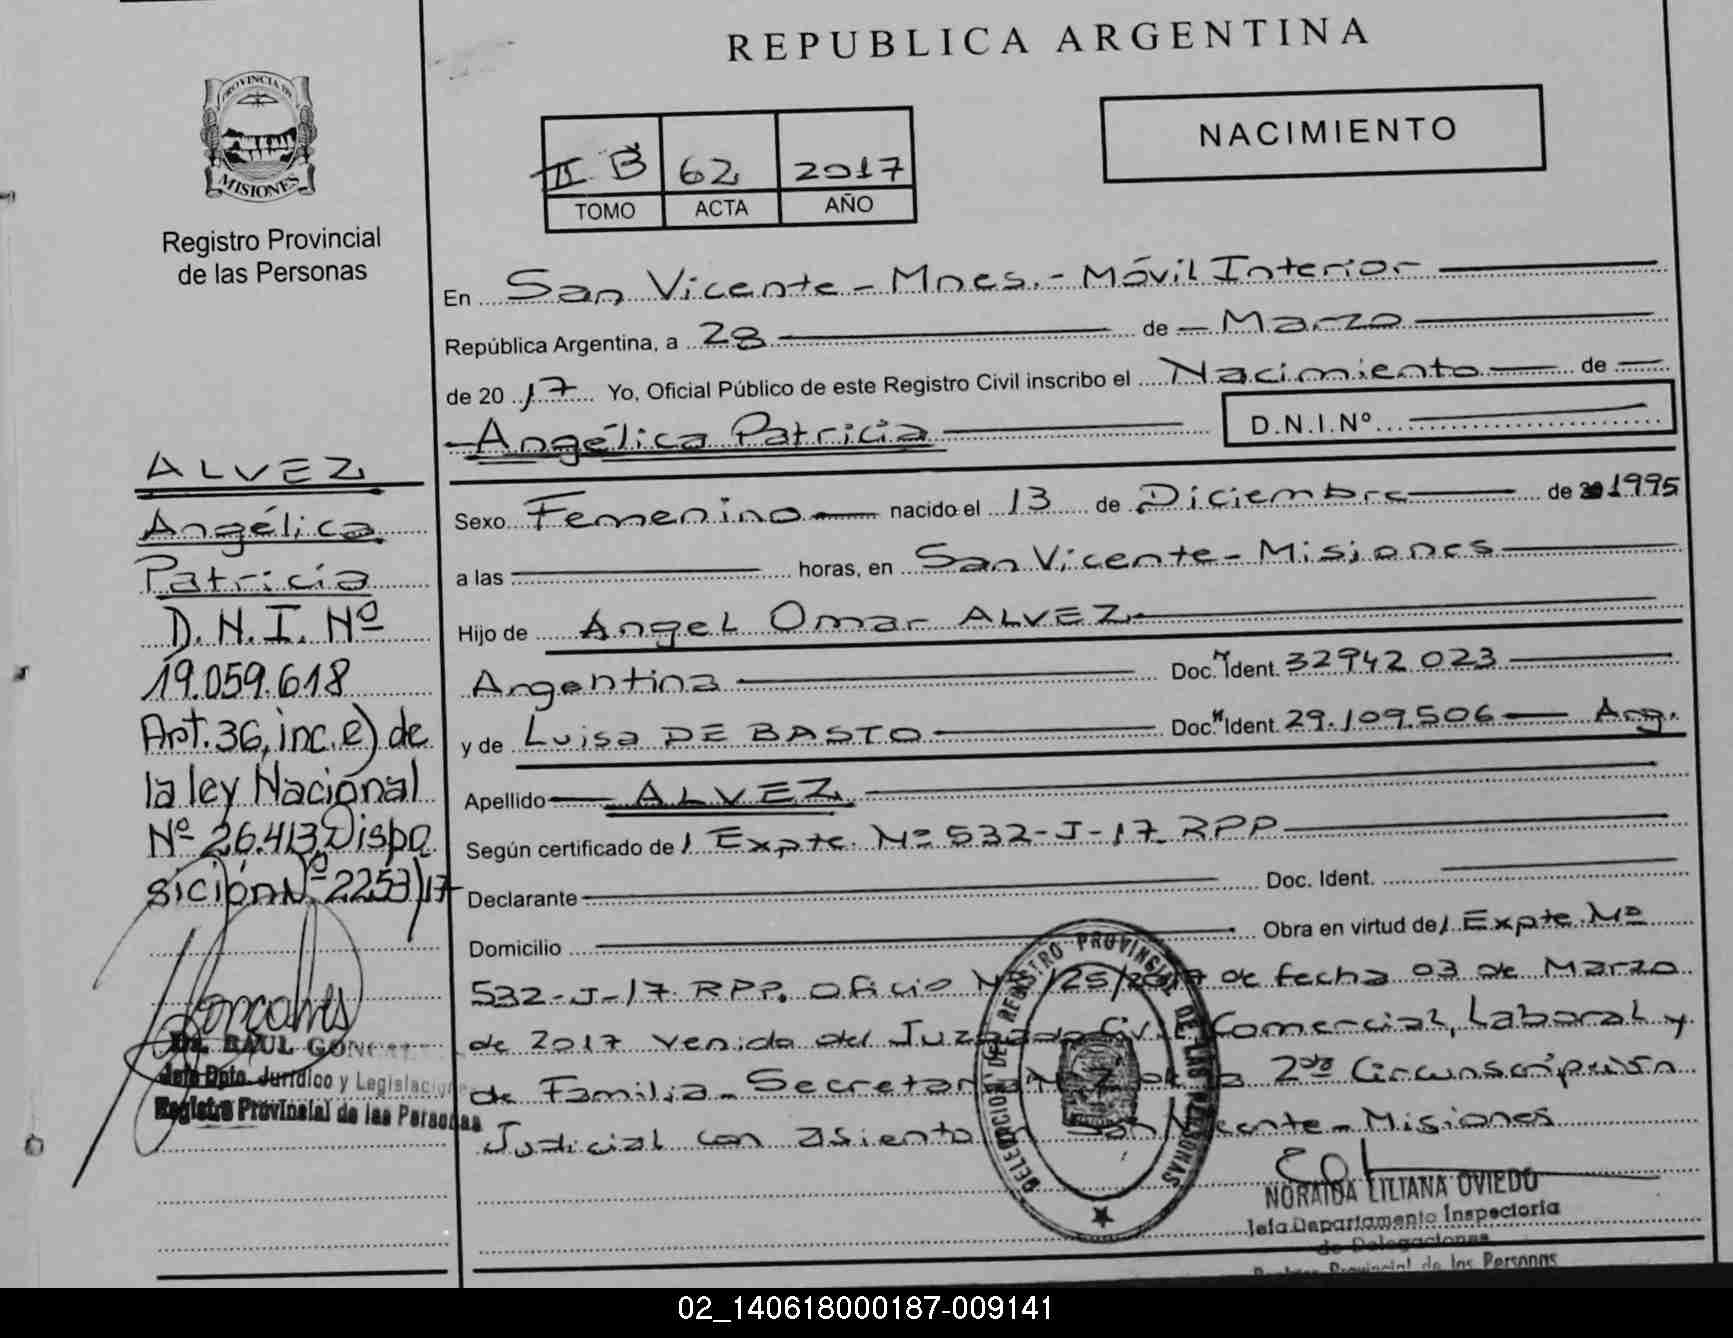 REPUBLICA ARGENTINA
PROVINCIA DE
MISIONES
Registro Provincial
de las Personas
II B 62 2017
TOMO ACTA AÑO
NACIMIENTO
En San Vicente - Mnes. - Móvil Interior
República Argentina, a 28 de Marzo
de 2017 Yo, Oficial Público de este Registro Civil inscribo el Nacimiento de
Angélica Patricia D.N.I.Nº
Sexo Femenino nacido el 13 de Diciembre de 1995
a las horas, en San Vicente - Misiones
Hijo de Angel Omar ALVEZ
Argentina Doc. Ident. 32942023
y de Luisa DE BASTO Doc. Ident. 29.109.506 Arg.
Apellido ALVEZ
Según certificado de / Expte. Nº 532-J-17 RPP
Declarante Doc. Ident.
Domicilio Obra en virtud de / Expte Nº
532-J-17 RPP. Oficio Nº 125/2017 de fecha 03 de Marzo
de 2017 venido del Juzgado Civil Comercial, Laboral y
de Familia - Secretaria Nº 2 de la 2da Circunscripción
Judicial con asiento San Vicente - Misiones
ALVEZ
Angélica
Patricia
D.N.I. Nº
19.059.618
Art. 36, inc. e) de
la ley Nacional
Nº 26.413 Dispo
sición Nº 2253/17
Dr. RAUL
Jefe Dpto. Jurídico y Legislación
Registro Provincial de las Personas
DELEGACION DE REGISTRO PROVINCIAL DE LAS PERSONAS
NORAIDA LILIANA OVIEDO
Jefa Departamento Inspectoria
de Delegaciones
Registro Provincial de las Personas
02_140618000187-009141